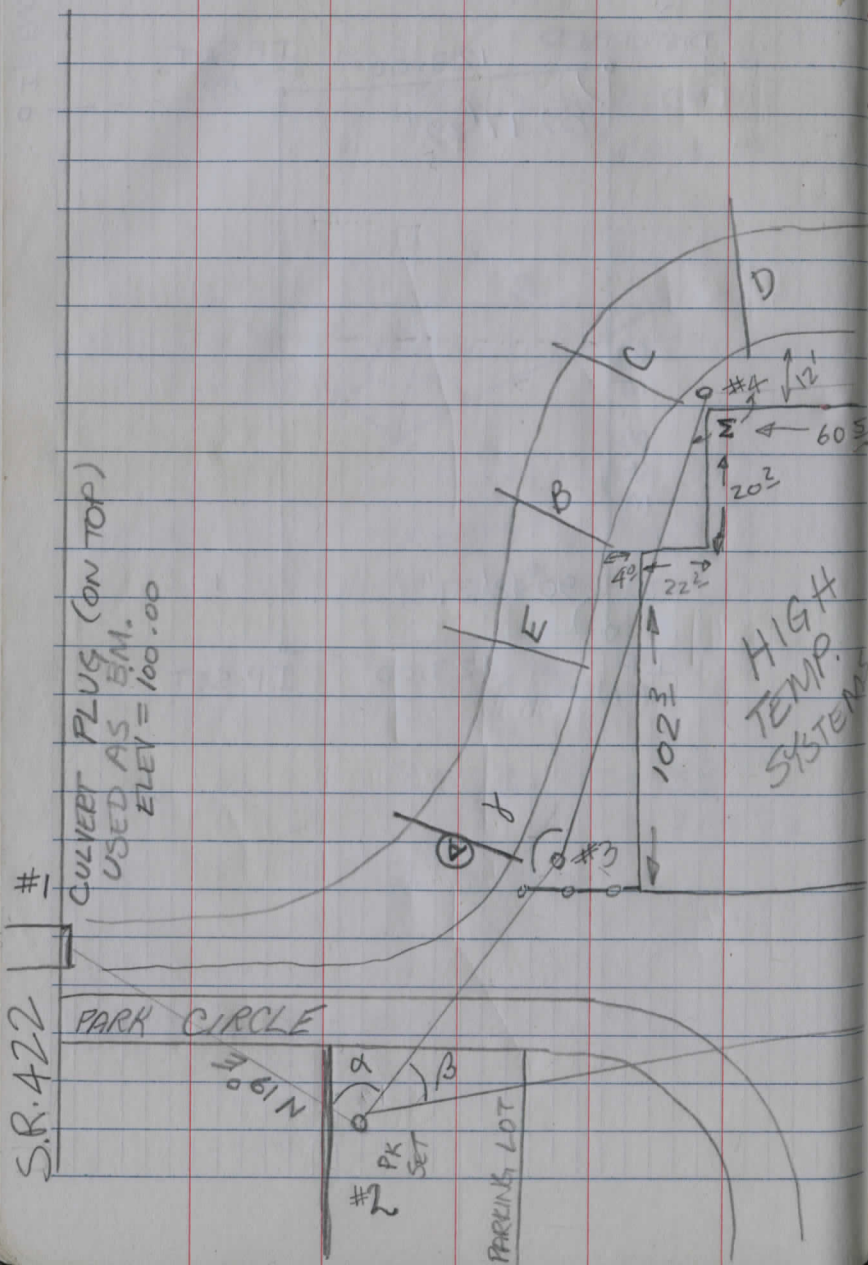 S.R. 422
#1
CULVERT PLUG (ON TOP)
USED AS B.M.
ELEV = 100.00
PARK CIRCLE
α
β
#2
PK
SET
PARKING LOT
A
γ
#3
E
B
C
D
#4
12'
Σ
60
20²
4⁰
22²
102³
HIGH
TEMP.
SYSTEMS